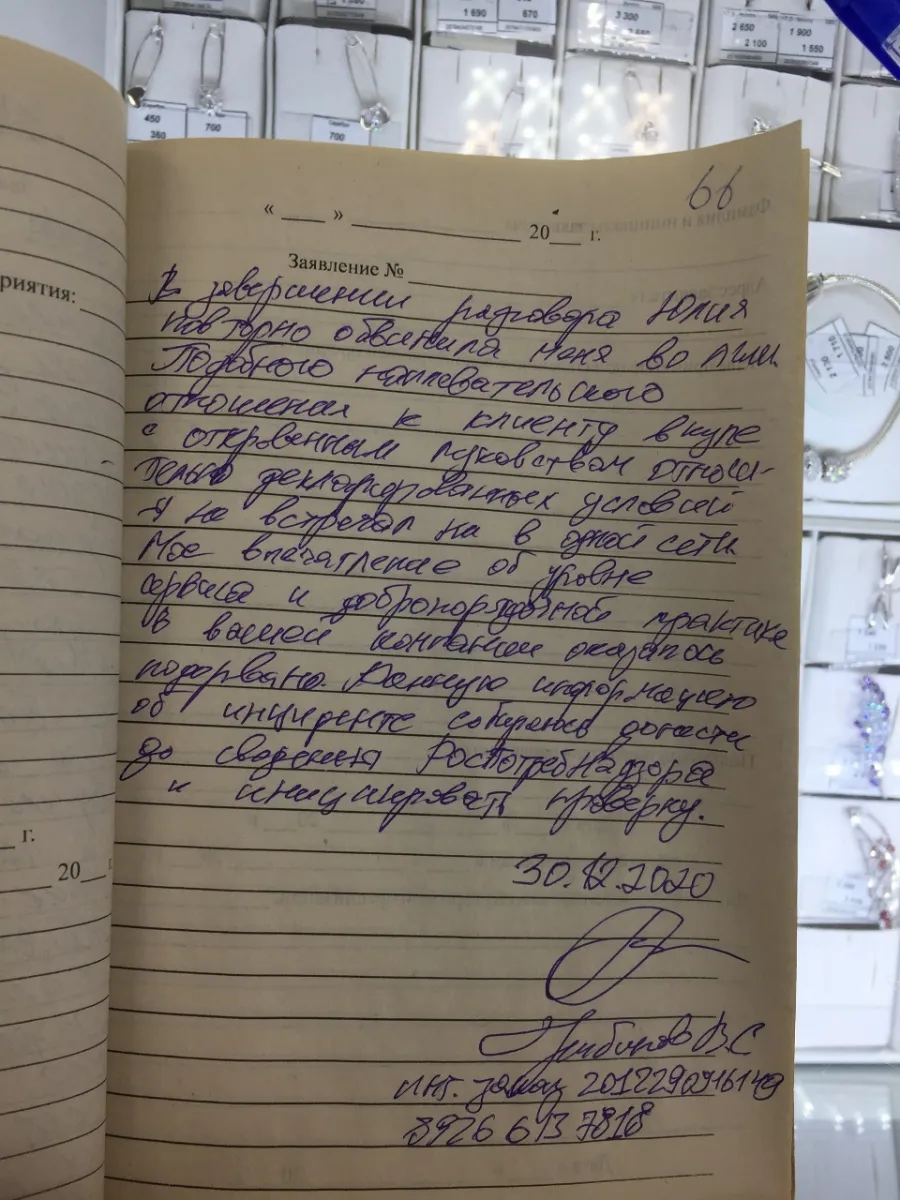 1 690
670
3 300
2 650
2 100
1 900
1 550
450
360
700
700
66
« ___ » ____________ 20___ г.
Заявление № ____________
В завершении разговора Юлия
повторно обвинила меня во лжи.
Подобного наплевательского
отношения к клиенту вкупе
с откровенным лукавством относи-
тельно декларированных условий
я не встречал ни в одной сети.
Мое впечатление об уровне
сервиса и добропорядочной практике
в вашей компании оказалось
подорвано. Данную информацию
об инциденте собираюсь донести
до сведения РосПотребНадзора
и инициировать проверку.
30.12.2020
В.С
инт. заказ
8926 613 7818
риятия:
г.
20___ г